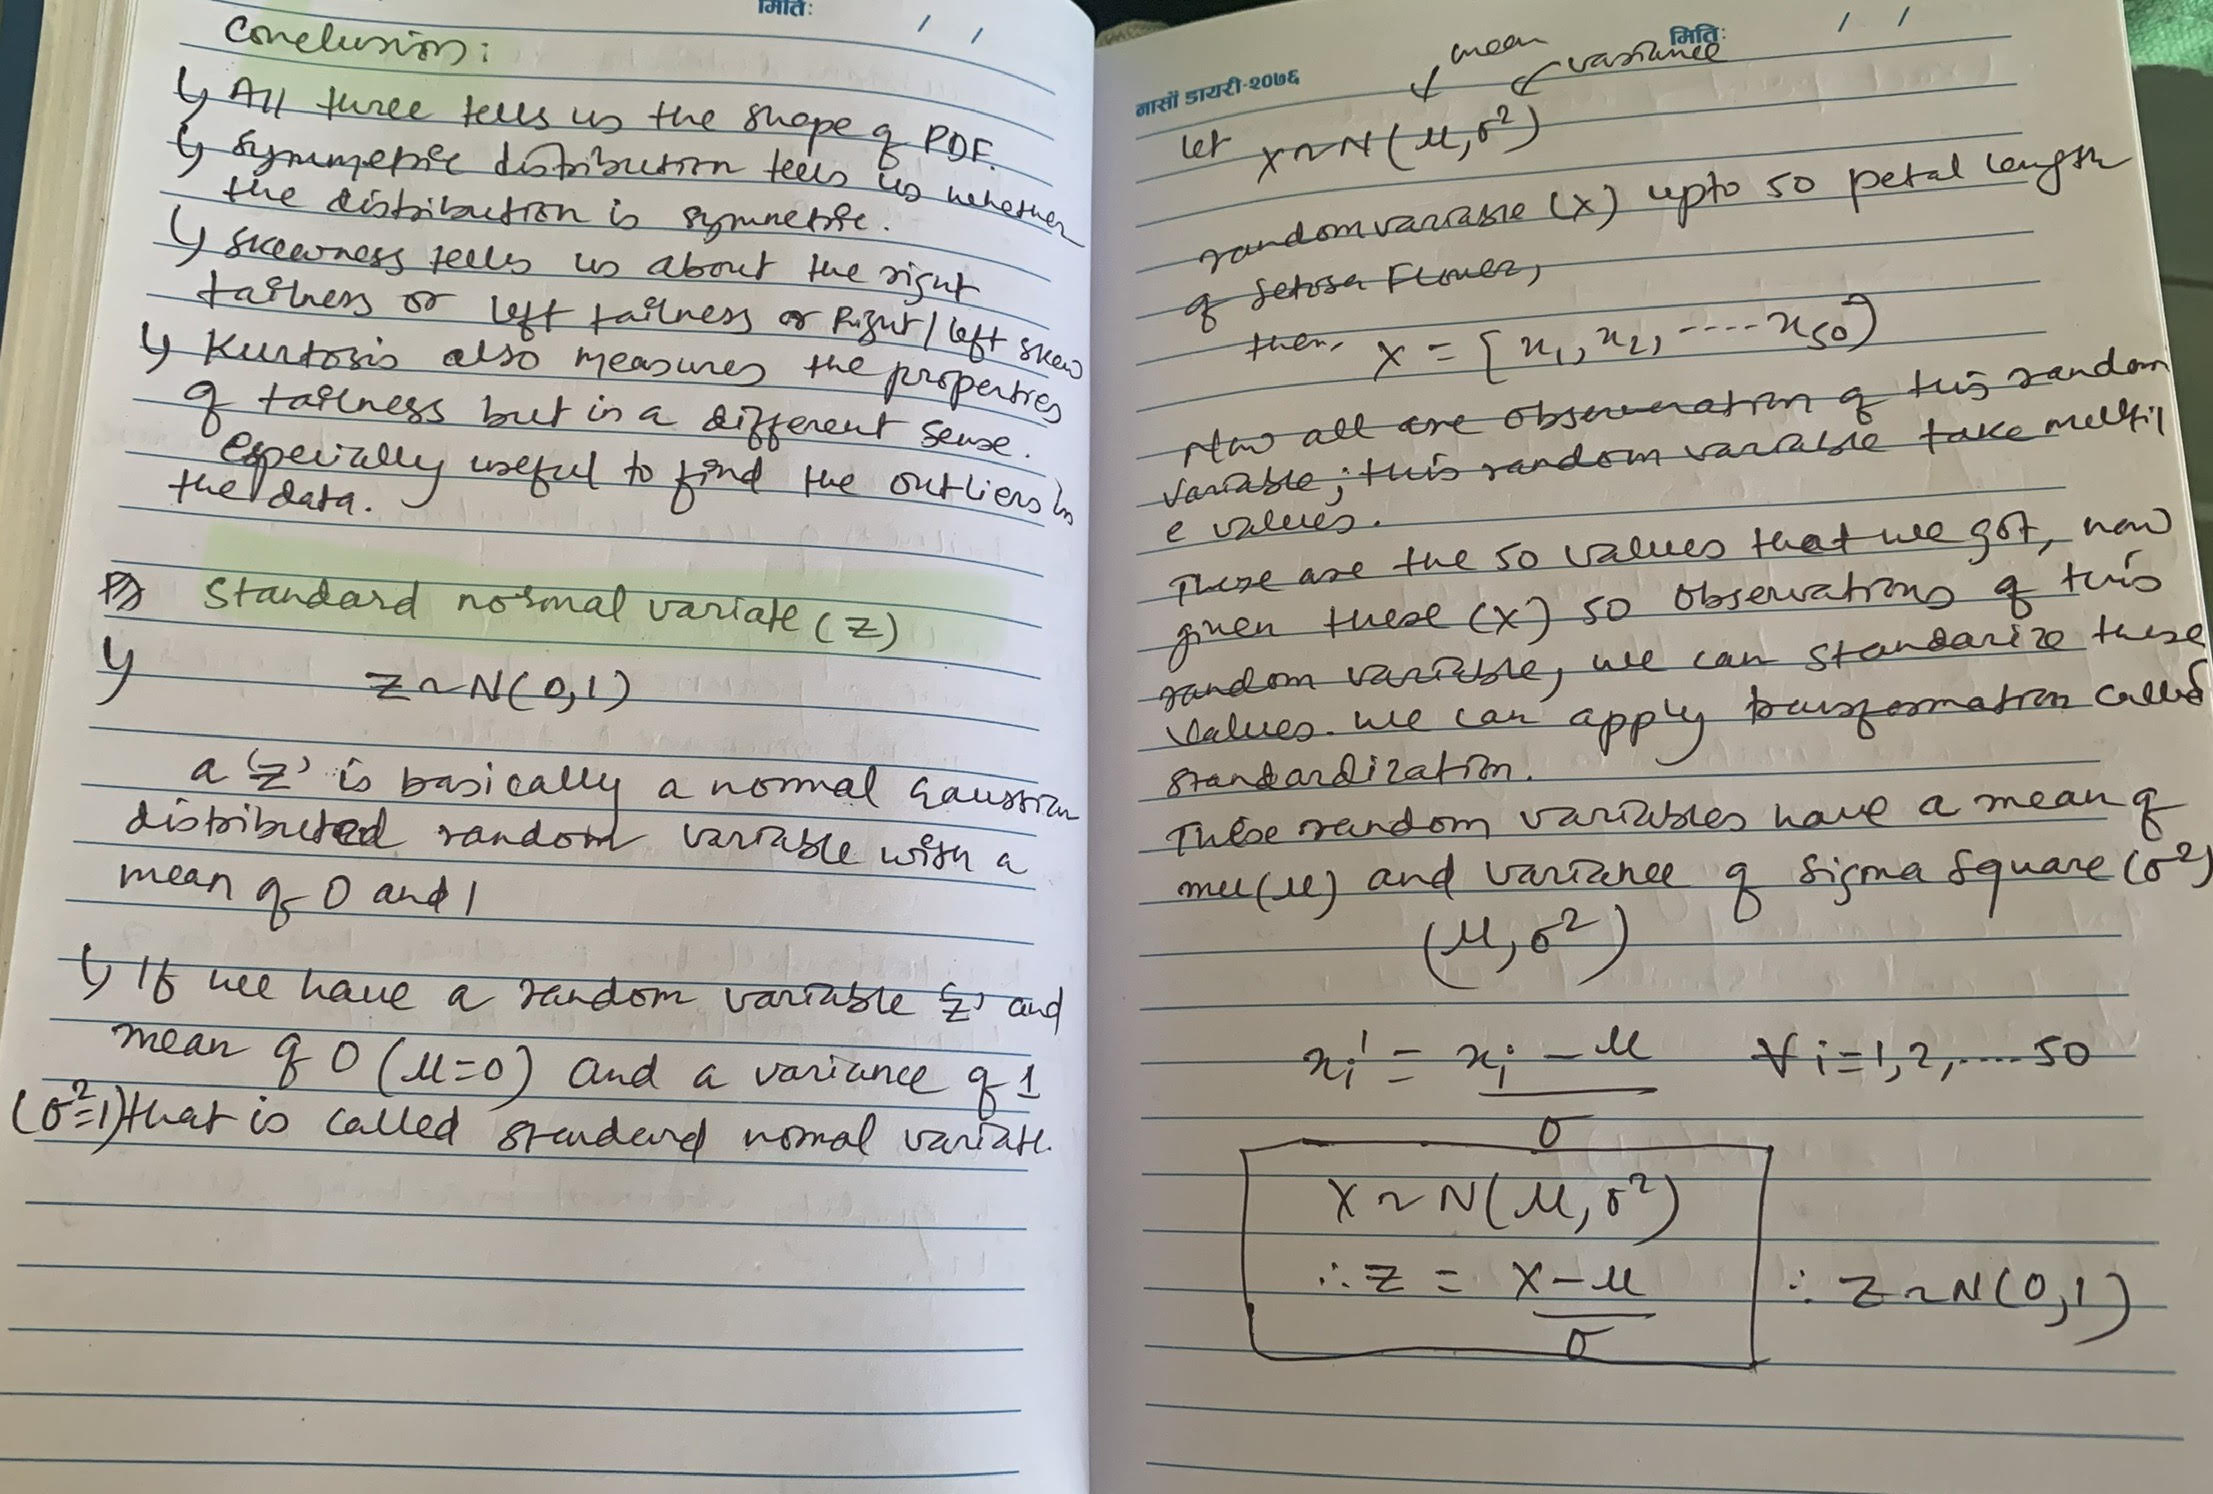 मितिः / /
Conclusion:
↳ All three tells us the shape of PDF.
↳ Symmetric distribution tells us whether
the distribution is symmetric.
↳ skewness tells us about the right
tailness or left tailness or Right/left skew
↳ Kurtosis also measures the properties
of tailness but in a different sense.
especially useful to find the outliers in
the data.
Standard normal variate (z)
↳ Z ~ N(0,1)
a 'z' is basically a normal Gaussian
distributed random variable with a
mean of 0 and 1
↳ If we have a random variable 'z' and
mean of 0 (μ=0) and a variance of 1
(σ²=1) that is called standard normal variate.
मितिः / /
नासों डायरी-२०७६
mean
variance
let X ~ N(μ, σ²)
random variable (x) upto 50 petal length
of Setosa Flower,
then, X = [x₁, x₂, ---- x₅₀]
Now all are observation of this random
variable; this random variable take multipl
e values.
These are the 50 values that we got, now
given these (x) 50 observations of this
random variable, we can standarize these
values. we can apply transformation called
standardization.
These random variables have a mean of
mu(μ) and variance of sigma square (σ²)
(μ, σ²)
xᵢ' = xᵢ - μ / σ ∀ i = 1, 2, .... 50
X ~ N(μ, σ²)
∴ z = X - μ / σ ∴ Z ~ N(0,1)